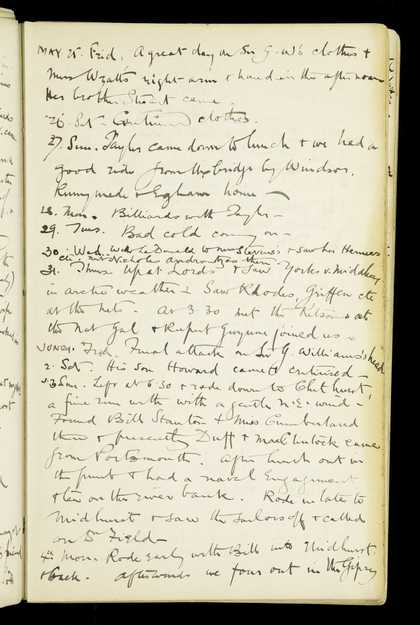 MAY 25. Frid. A great day on Sir G. W's clothes &
Miss Wyatt's right arm & hand in the afternoon
Her brother Stuart came.
26. Sat. Continued clothes.
27. Sun. Taylor came down to lunch & we had a
good ride from Uxbridge by Windsor,
Runnymede & Egham home —
28. Mon. Billiards with Taylor —
29. Tues. Bad cold coming on —
30. Wed. & saw her
31. Thurs. Up at Lords & saw Yorks v. Middlesex
in arctic weather & saw Rhodes, Griffen etc
at the nets. At 3 30 met the at
the Nat Gal & Rupert Gwynne joined us —
JUNE 1. Frid Final attack on Sir G. Williams's head
2. Sat. His son Howard came & criticised —
3 Sun. Left at 6 30 & rode down to Chithurst,
a fine run with with a gentle N.E. wind —
Found Bill Stanton & Miss Cumberland
there & presently Duff & came
from Portsmouth. After lunch out in
the punt & had a naval Engagement
& tea on the river bank. Rode in late to
Midhurst & saw the sailors off & called
on Field —
4th Mon. Rode early with Bill into Midhurst
& back. Afterwards we four out in the